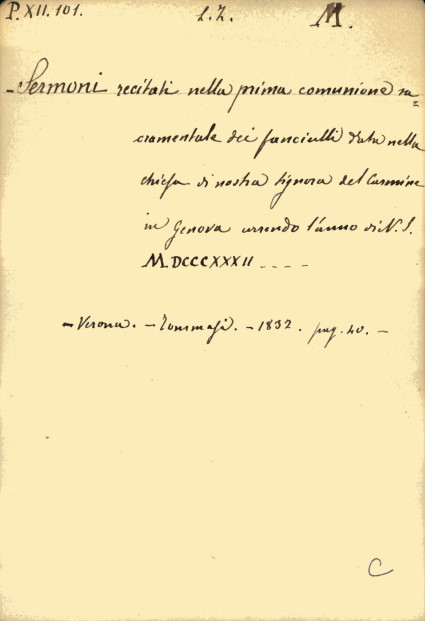 P. XII. 101. L. Z. M.
- Sermoni recitati nella prima comunione sa=
cramentale dei fanciulli data nella
chiesa di nostra signora del Carmine
in Genova correndo l'anno di N. S.
MDCCCXXXII ....
- Verona. - Tommasi. - 1832. pag. 40. -
C